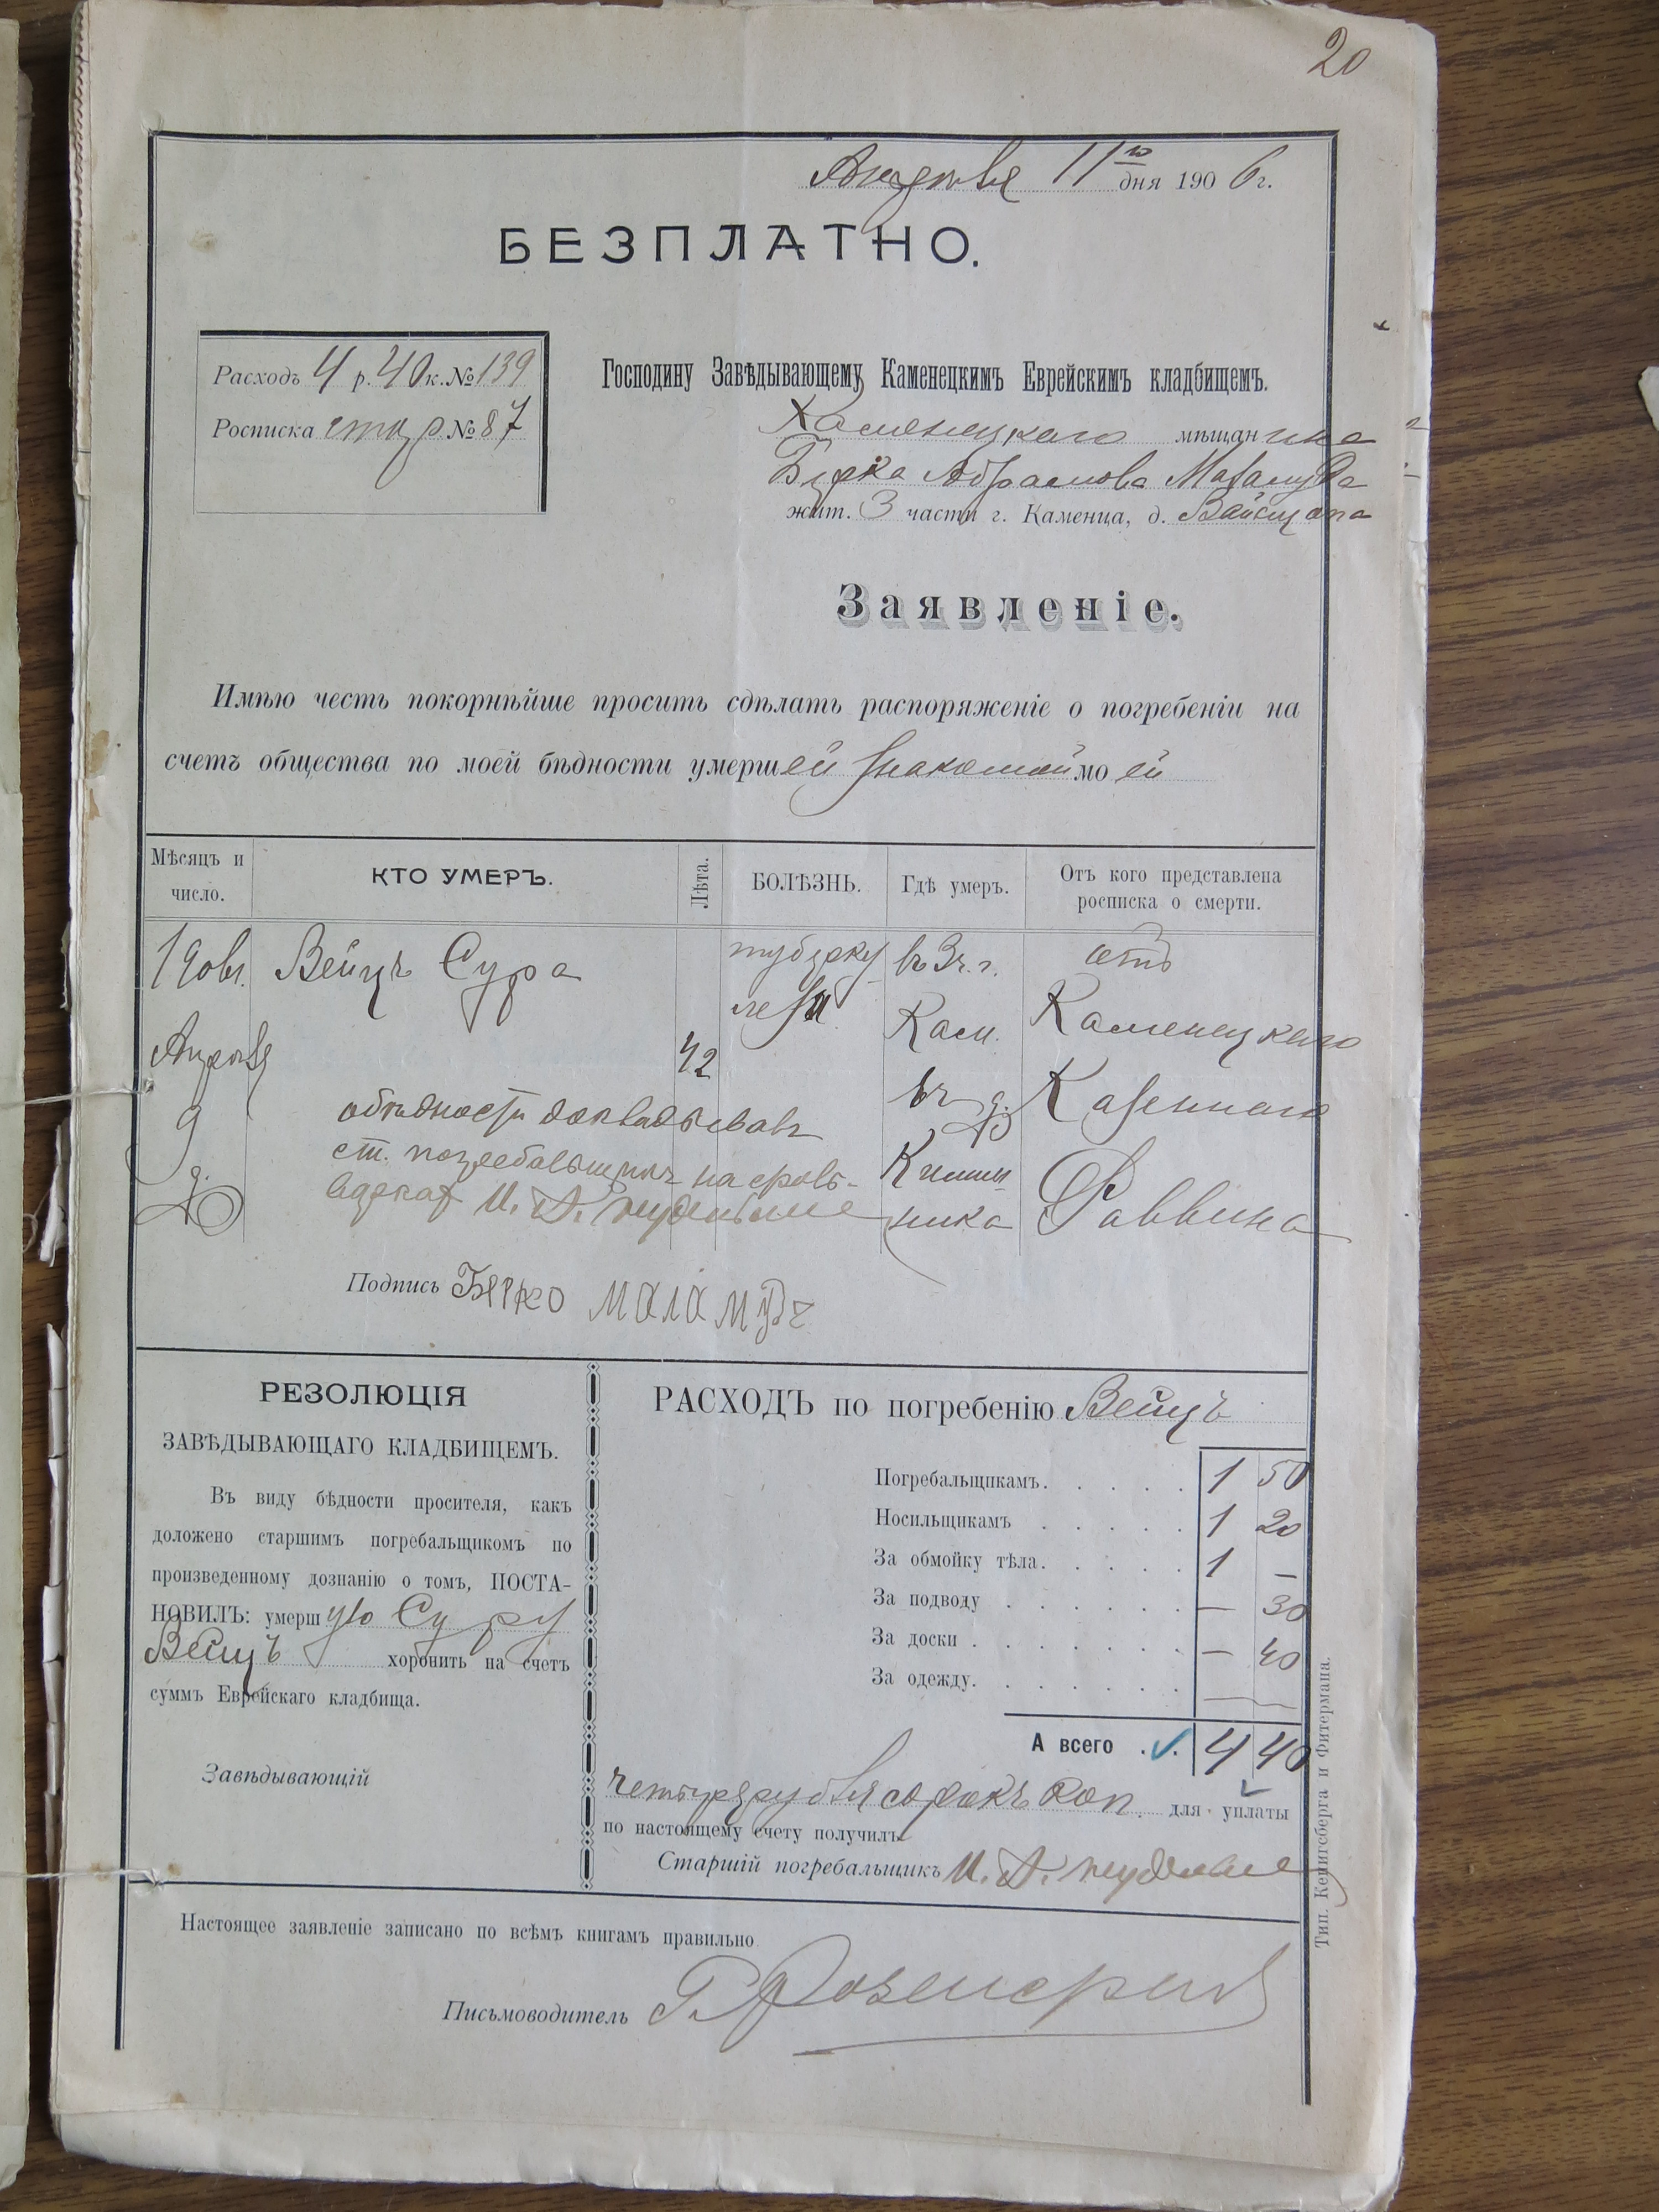 20
Апреля 11го дня 1906г.
БЕЗПЛАТНО.
Расходъ 4 р. 40 к. № 139
Росписка № 87
Господину Завѣдывающему Каменецкимъ Еврейскимъ кладбищемъ.
Каменецкаго мѣщанина
Берка Абрамова Маламуда
жит. 3 части г. Каменца, д. Вайсцапа
Заявленіе.
Имѣю честь покорнѣйше просить сдѣлать распоряженіе о погребеніи на
счетъ общества по моей бѣдности умершей знакомой моей
Мѣсяцъ и число. КТО УМЕРЪ. Лѣта. БОЛѢЗНЬ. Гдѣ умеръ. Отъ кого представлена росписка о смерти.
Вейцъ Сура туберку въ 3 ч. г. отъ
леза Кам. Каменецкаго
Апреля 42 въ д. Казеннаго
9
обѣдности докладывавъ
ст. погребальщикъ
Раввина
Подпись Берко Маламудъ
РЕЗОЛЮЦІЯ
ЗАВѢДЫВАЮЩАГО КЛАДБИЩЕМЪ.
Въ виду бѣдности просителя, какъ
доложено старшимъ погребальщикомъ по
произведенному дознанію о томъ, ПОСТА-
НОВИЛЪ: умершую Суру
Вейцъ хоронить на счетъ
суммъ Еврейскаго кладбища.
Завѣдывающій
РАСХОДЪ по погребенію Вейцъ
Погребальщикамъ. 1 50
Носильщикамъ 1 20
За обмойку тѣла. 1 —
За подводу — 30
За доски — 40
За одежду. — —
А всего 4 40
четыре рубля сорокъ коп. для уплаты
по настоящему счету получилъ
Старшій погребальщикъ И. А.
Настоящее заявленіе записано по всѣмъ книгамъ правильно
Письмоводитель
Тип. Кенигсберга и Фитермана.